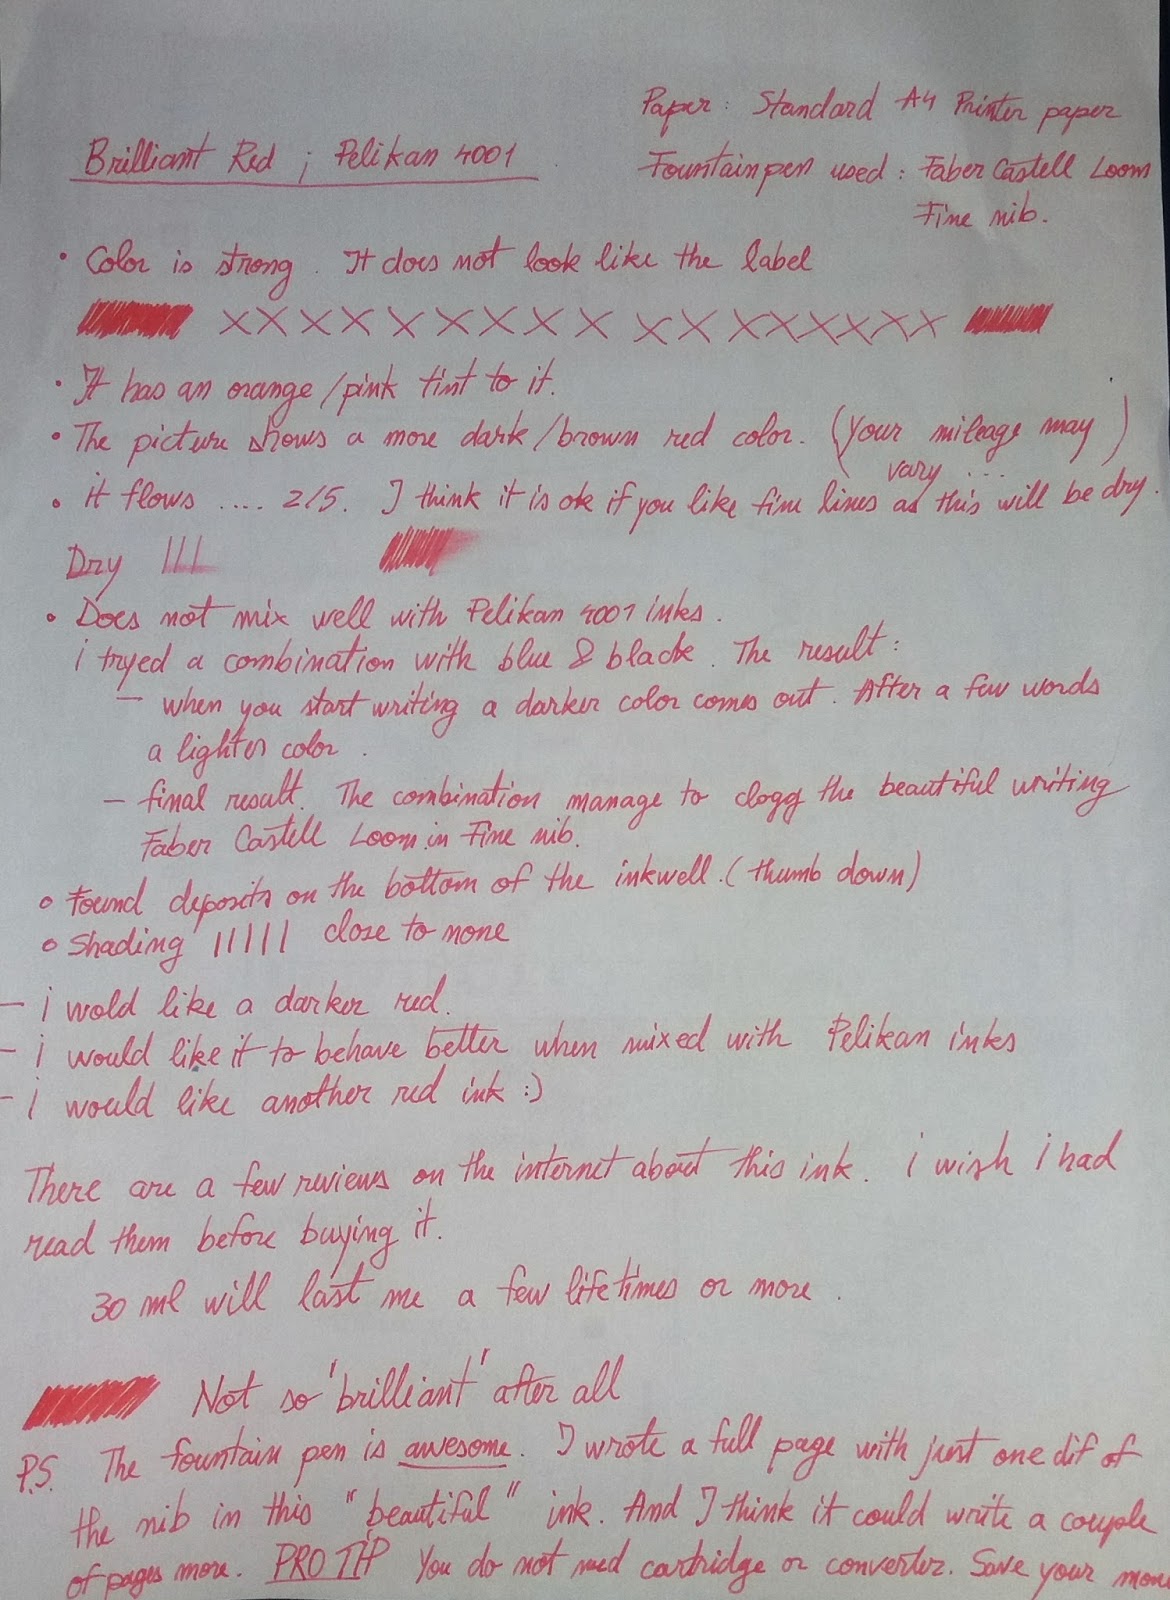 Paper: Standard A4 Printer paper
Brilliant Red ; Pelikan 4001
Fountain pen used : Faber Castell Loom
Fine nib.
• Color is strong. It does not look like the label
XXXXXXXXXXXXXXXX
• It has an orange/pink tint to it.
• The picture shows a more dark/brown red color. (Your mileage may
vary ... )
• it flows .... 2/5. I think it is ok if you like fine lines as this will be dry.
Dry |||
• Does not mix well with Pelikan 4001 inks.
i tryed a combination with blue & black. The result:
– when you start writing a darker color comes out. After a few words
a lighter color.
– final result. The combination manage to clogg the beautiful writing
Faber Castell Loom in Fine nib.
• Found deposits on the bottom of the inkwell. (thumb down)
• Shading ||||| close to none
– i wold like a darker red.
– i would like it to behave better when mixed with Pelikan inks
– i would like another red ink :)
There are a few reviews on the internet about this ink. i wish i had
read them before buying it.
30 ml will last me a few lifetimes or more.
Not so 'brilliant' after all
P.S. The fountain pen is awesome. I wrote a full page with just one dif of
the nib in this "beautiful" ink. And I think it could write a couple
of pages more. PRO TIP You do not need cartridge or converter. Save your mone